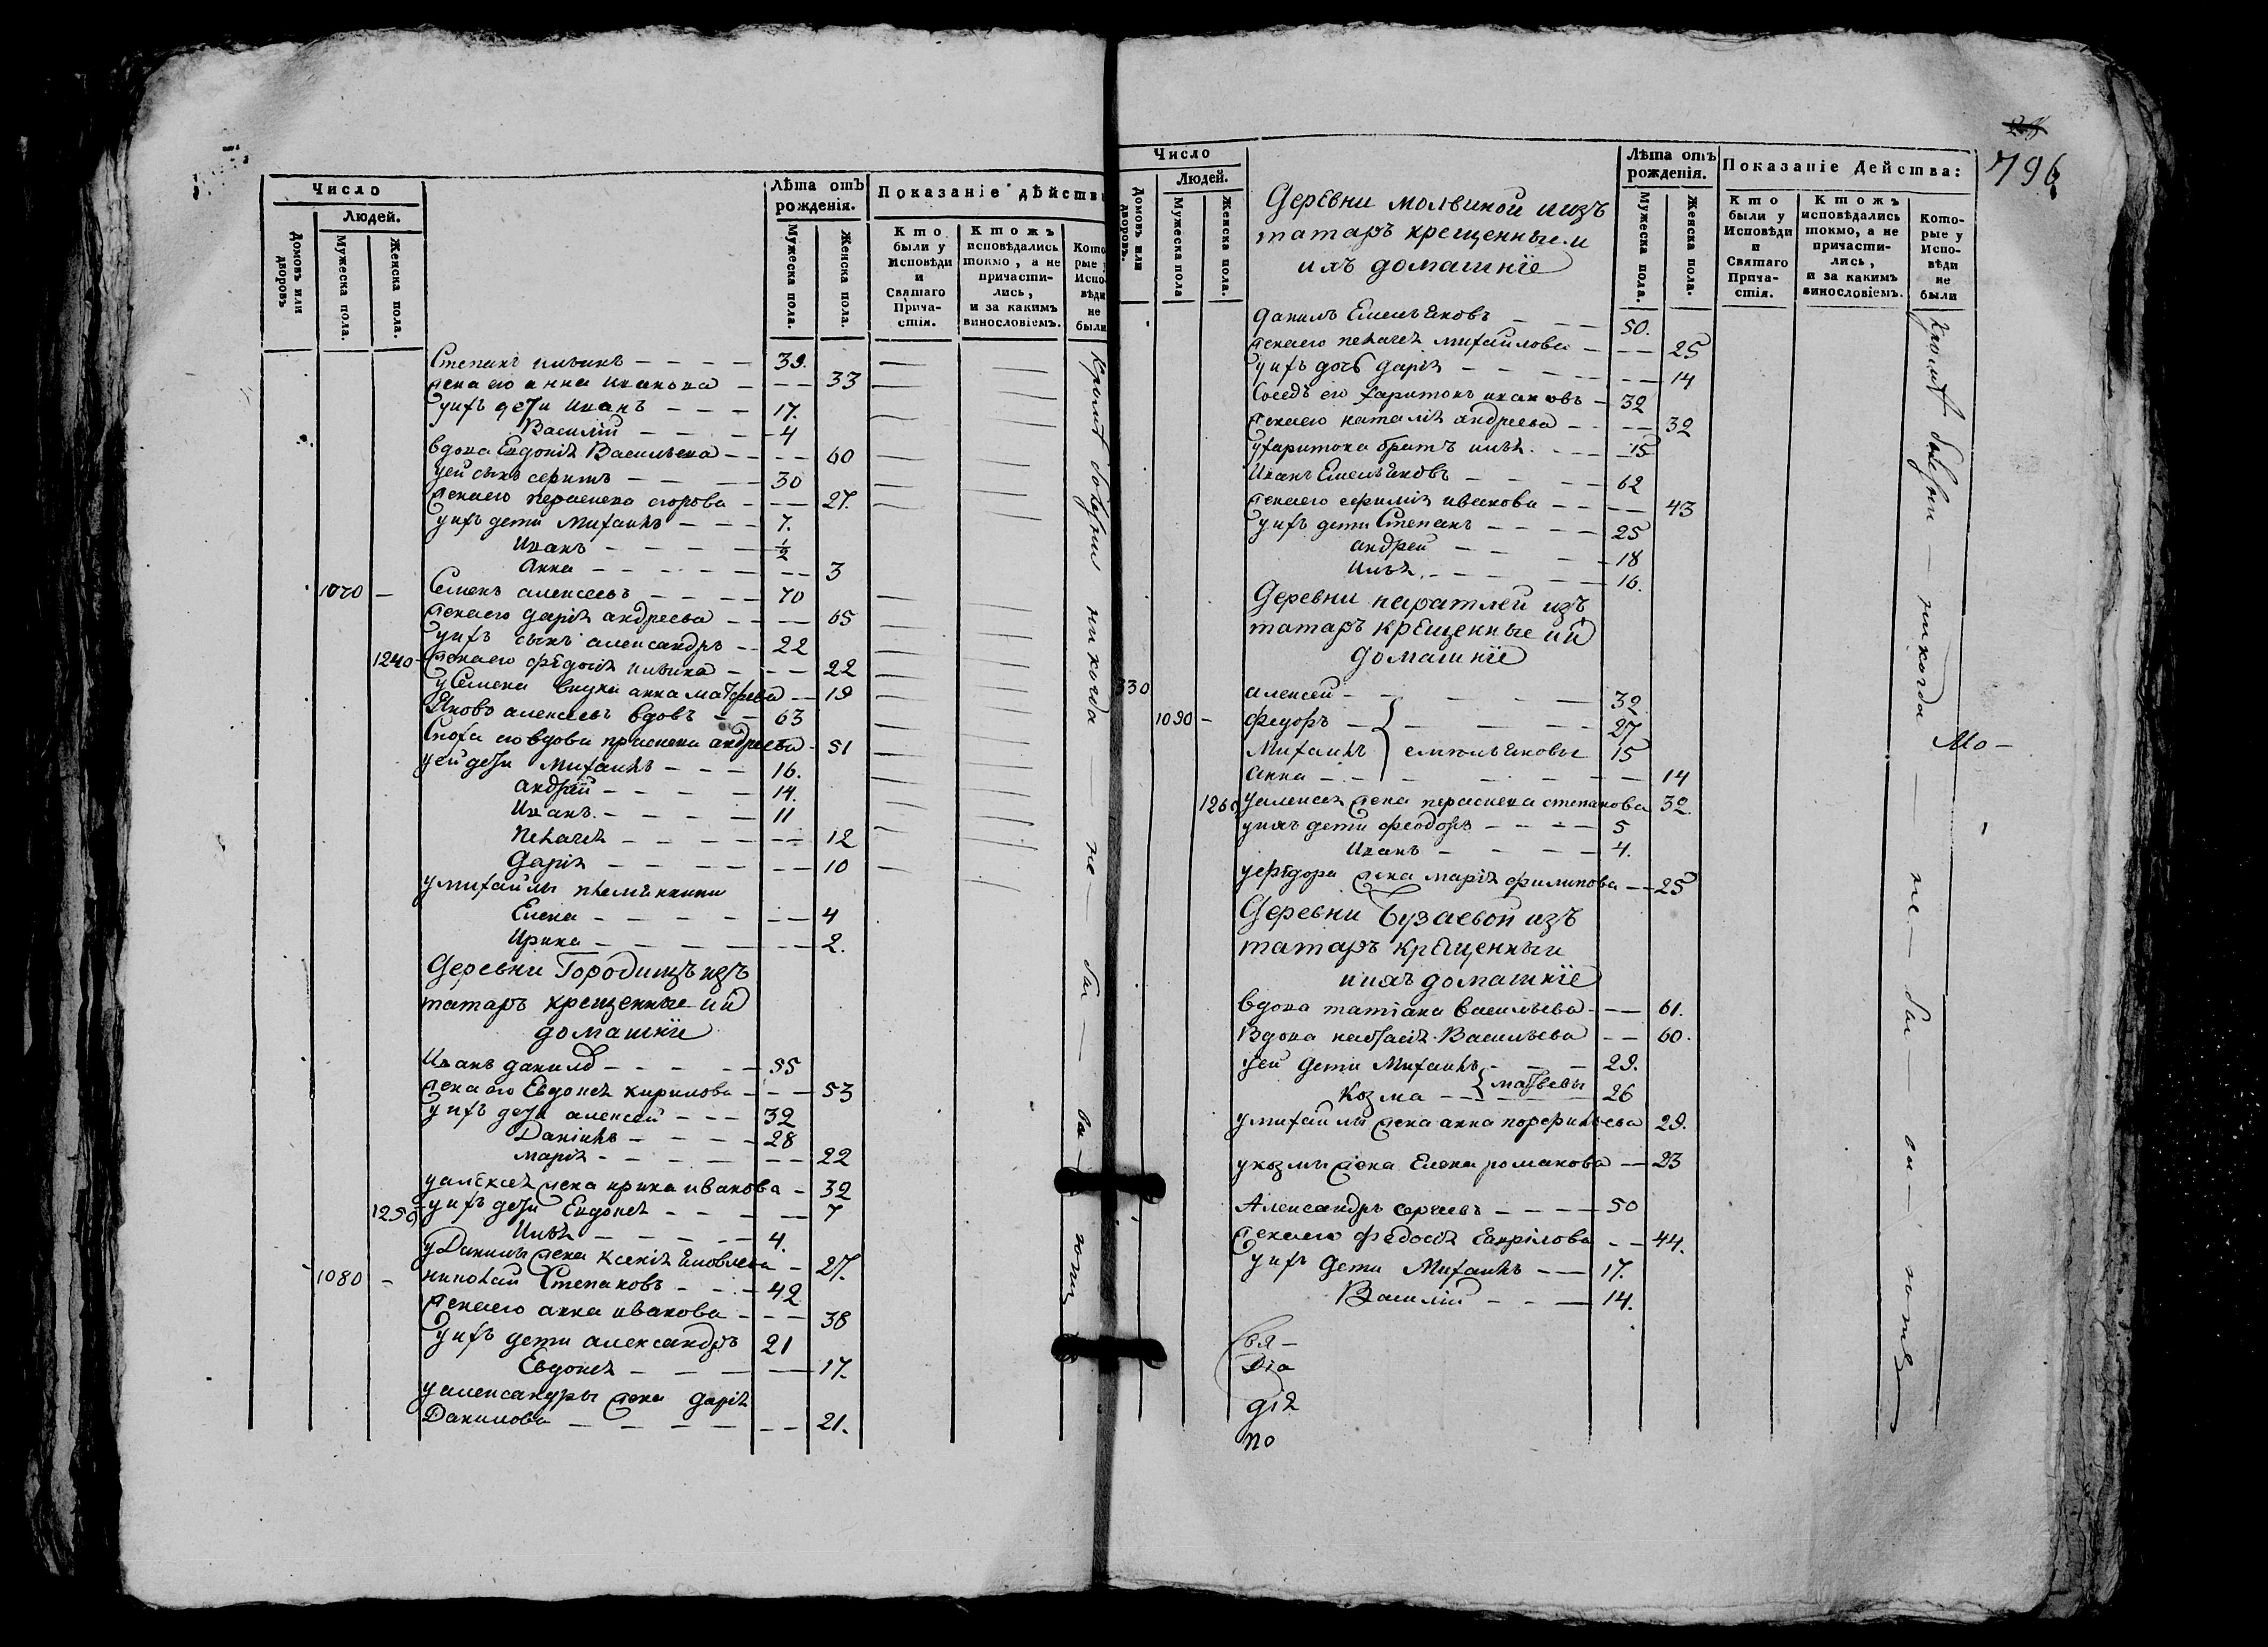 Число
Людей.
Домовъ или дворовъ
Мужеска пола.
Женска пола.
Лѣта отъ рожденія.
Мужеска пола.
Женска пола.
Показаніе дѣйств
Кто были у Исповѣди и Святаго Прича-стія.
Ктожъ исповѣдались токмо, а не причасти-лись, и за какимъ винословіемъ.
Кото рые у Испо- вѣди не были
Степанъ ильинъ 39.
жена его анна иванова 33
у ихъ дети Иванъ 17.
Василій 4
вдова Евдокія Васильева 60
у ей сынъ 30
жена его егорова 27.
у ихъ дети Михаилъ 7.
Иванъ 1/2
Анна 3
1070 Семенъ алексеевъ 70
жена его дарія андреева 65
у ихъ сынъ александръ 22
1240 жена его федосія ильина 22
у Семена внука анна матфеева 19
Яковъ алексеевъ вдовъ 63
Сноха его вдова андреева 51
у ей дети Михаилъ 16.
андрей 14.
Иванъ 11
Пелагея 12
Дарія 10
у михайлы племянницы
Елена 4
Ирина 2.
Деревни Городищъ изъ
татаръ крещенные и ий
домашніе
Иванъ данилов 55
жена его Евдокея кирилова 53
у ихъ дети алексей 32
Данилъ 28
марія 22
у алексея жена ирина иванова 32
1250 у ихъ дети Евдокея 7
Илья 4.
у Данилы жена ксенія яковлева 27.
1080 николай Степановъ 42
жена его анна иванова 38
у ихъ дети александръ 21
Евдокея 17.
у александры жена дарія
Данилова 21.
кроме болезни никогда не бывають
796
Число
Людей.
Домовъ или дворовъ.
Мужеска пола
Женска пола.
Деревни молвиной и изъ
татаръ крещенные и
ихъ домашніе
Лѣта отъ рожденія.
Мужеска пола.
Женска пола.
Показаніе Действа:
Кто были у Исповѣди и Святаго Прича-стія.
Ктожъ исповѣдались токмо, а не причасти-лись, и за каким винословіемъ.
Кото-рые у Испо-вѣди не были
данилъ Емельяновъ 50.
жена его пелагея михайлова 25
у ихъ дочь дарія 14
Соседъ его харитонъ ивановъ 32
жена его наталія андреева 32
у харитона братъ илья 15
Иванъ Емельяновъ 62
жена его ефимія иванова 43
у ихъ дети Степанъ 25
андрей 18
Илья 16.
Деревни наратлей изъ
татаръ крещенные и ий
домашніе
330 алексей 32
1090 федоръ 27
Михаилъ емельяновы 15
анна 14
1260 у алексея жена степанова 32
у ихъ дети феодоръ 5
Иванъ 4.
у федора жена марія филипова 25
Деревни Бузаевой изъ
татаръ крещенныи
и ихъ домашніе
вдова татіана васильева 61.
Вдова настасія Васильева 60.
у ей дети Михаилъ 29.
Козма матвевы 26
у михайлы жена анна порфильева 29.
у козмы жена Елена романова 23
Александръ сергеевъ 50
жена его федосія гаврілова 44.
у ихъ дети Михаилъ 17.
Василій 14.
Свя-
Дта
дія
по
кроме болезни никогда не бывають
Мо-